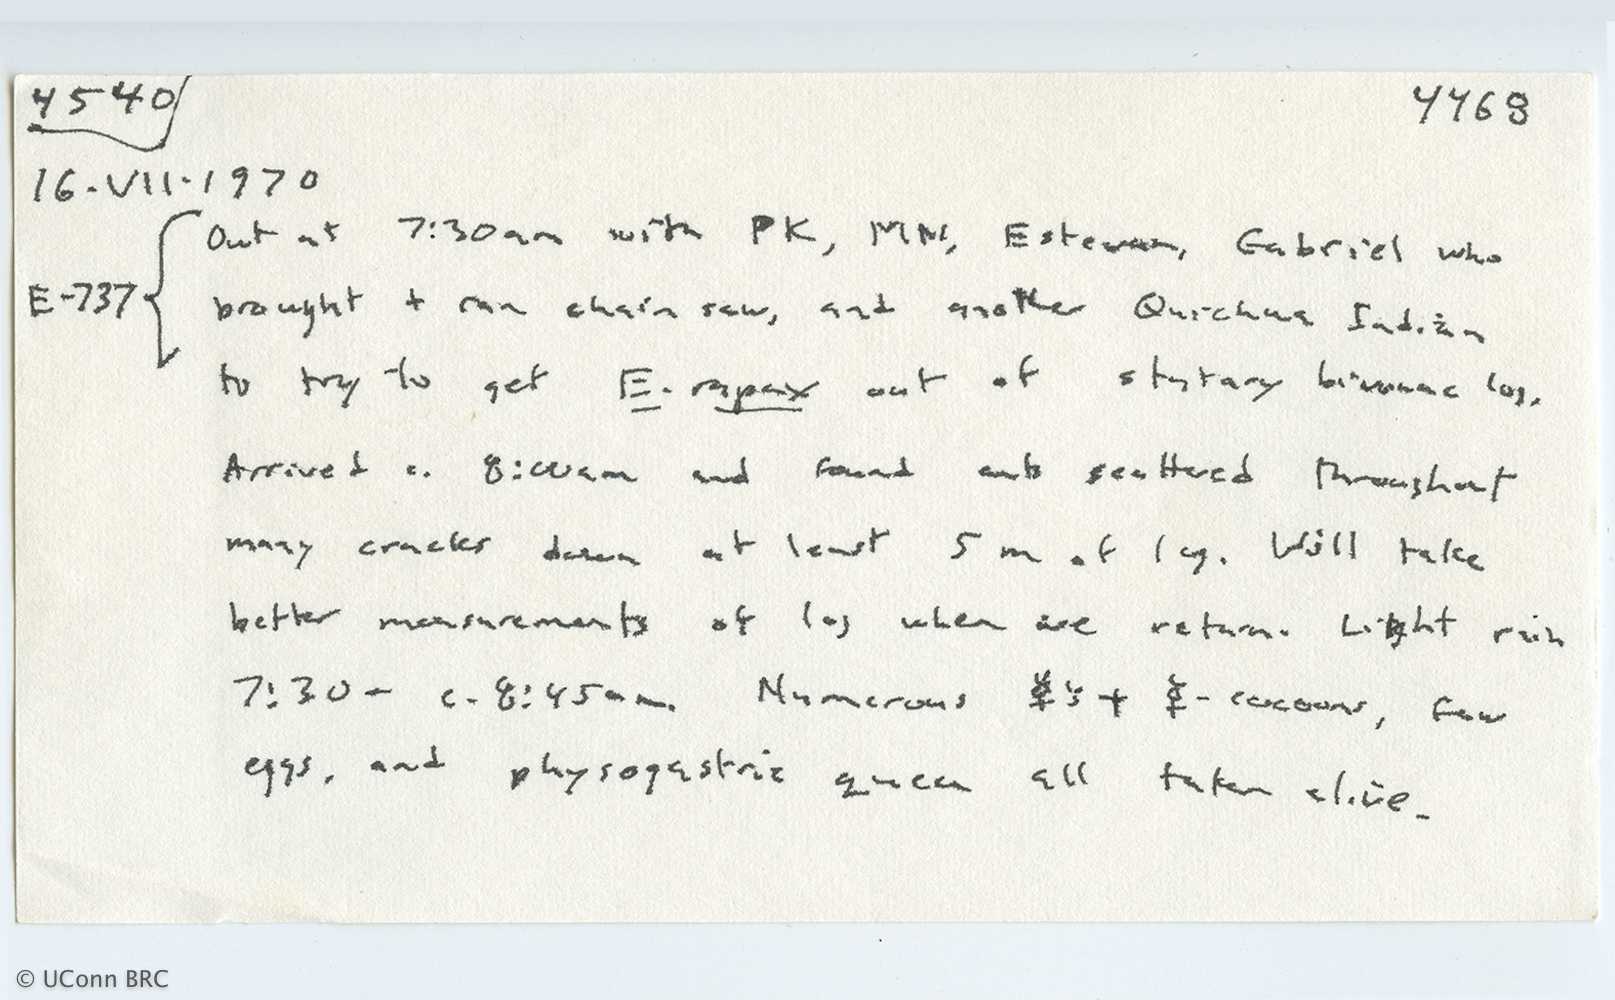 4540 4468
16-VII-1970
Out at 7:30am with PK, MN, Estevan, Gabriel who
E-737 brought + ran chain saw, and another Quichua Indian
to try to get E. rapax out of statary bivouac log.
Arrived c. 8:00am and found ants scattered throughout
many cracks down at least 5 m of log. Will take
better measurements of log when we return. Light rain
7:30 - c. 8:45am. Numerous ☿s + ☿-cocoons, few
eggs, and physogastric queen all taken alive.
© UConn BRC